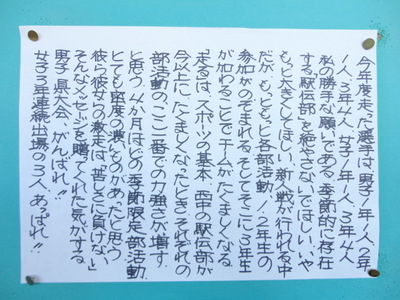 今年度走った選手は、男子1年1人、2年
1人、3年4人、女子1年1人、3年4人
私の勝手な願いである、季節的に存在
する「駅伝部を絶やさないでほしい、いや
もっと大きくしてほしい。新人戦が行れる中
だが、もっともっと各部活動1・2年生の
参加がのぞまれる。そしてそこに3年生
が加わることでチームがたくましくなる。
走るは、スポーツの基本、西中の駅伝部が
今以上に、たくましくなったとき、それぞれの
部活動の、ここ一番での力強さが増す、
と思う。4か月ほどの季節限定部活動。
とても密度の濃いものがあったと思う
彼ら彼女らの激走は「苦しさに負けない」
そんなメッセージを贈ってくれた気がする。
男子県大会、がんばれ!!
女子3年連続出場の3人、あっぱれ!!